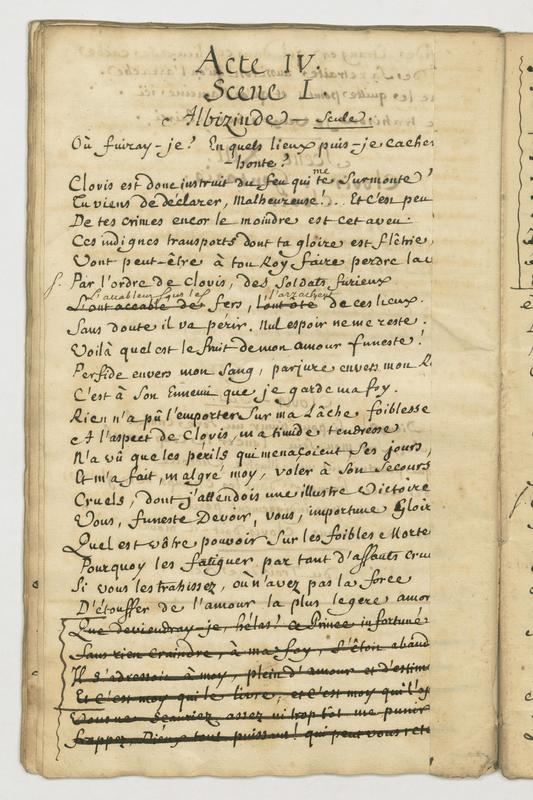 Acte IV.
Scene I.
Albizinde — Seule.
Où fuiray-je? En quels lieux puis-je cacher
honte?
Clovis est donc instruit du feu qui me te Surmonte?
Tu viens de déclarer, Malheureuse!.. Et c'est peu
De tes crimes encor le moindre est cet aveu.
Ces indignes transports dont ta gloire est flêtrie,
Vont peut-être à ton Roy faire perdre la v
Par l'ordre de Clovis, des Soldats furieux
L'accablent sous les l'arrachent
L'ont accablé de fers, l'ont oté de ces lieux.
Sans doute il va périr. Nul espoir ne me reste.
Voilà quel est le fruit de mon amour funeste!
Perfide envers mon Sang, parjure envers mon R
C'est à Son Ennemi que je garde ma foy.
Rien n'a pû l'emporter Sur ma lâche foiblesse
A l'aspect de Clovis, ma timide tendresse
N'a vû que les périls qui menaçoient Ses jours,
Et m'a fait, malgré moy, voler à Son Secours
Cruels, dont j'attendois une illustre Victoire
Vous, funeste Devoir, vous, importune Gloir
Quel est vôtre pouvoir Sur les foibles Morte
Pourquoy les fatiguer par tant d'assauts cru
Si vous les trahissez, où n'avez pas la force
D'étouffer de l'amour la plus legere amor
Que deviendray-je, hélas! Ce Prince infortuné
Sans rien craindre, à ma foy, S'étoit aband
Il s'adressoit à moy, plein d'amour et d'estim
Et c'est moy qui le livre, et c'est moy qui l'op
Vous ne Scauriez assez ni trop tôt me punir
Frappez, Dieux tout puissans! qui peut vous rete